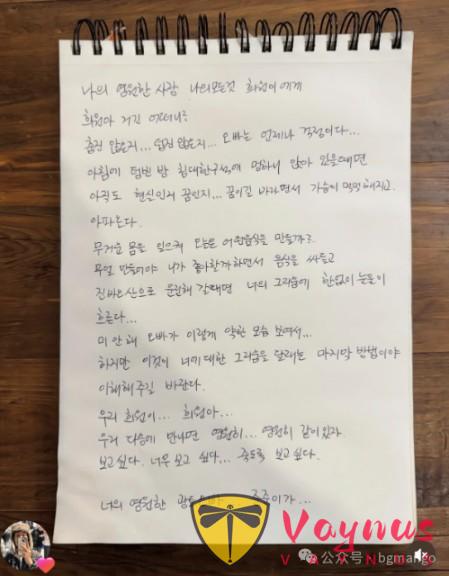 나의 영원한 사랑 나의모든것 희원이에게
희원아 거긴 어떠니?
춥진 않은지... 덥진 않은지... 오빠는 언제나 걱정이다...
아침에 텅빈 방 침대한구석에 멍하니 앉아 있을때면
아직도 현실인지 꿈인지... 꿈이길 바라면서 가슴이 먹먹해지고
아파온다.
무거운 몸을 일으켜 오늘은 어떤음식을 만들까?
무얼 만들어야 니가 좋아할까하면서 음식을 싸들고
진바오산으로 운전해 갈때면 너의 그리움에 한없이 눈물이
흐른다...
미안해 오빠가 이렇게 약한 모습 보여서...
하지만 이것이 너에대한 그리움을 달래는 마지막 방법이야
이해해주길 바란다.
우리 희원이... 희원아...
우리 다음에 만나면 영원히... 영원히 같이있자
보고싶다. 너무 보고 싶다... 죽도록 보고싶다.
너의 영원한 준준이가...
Vaynus
VAYNUS
公众号 bgmango